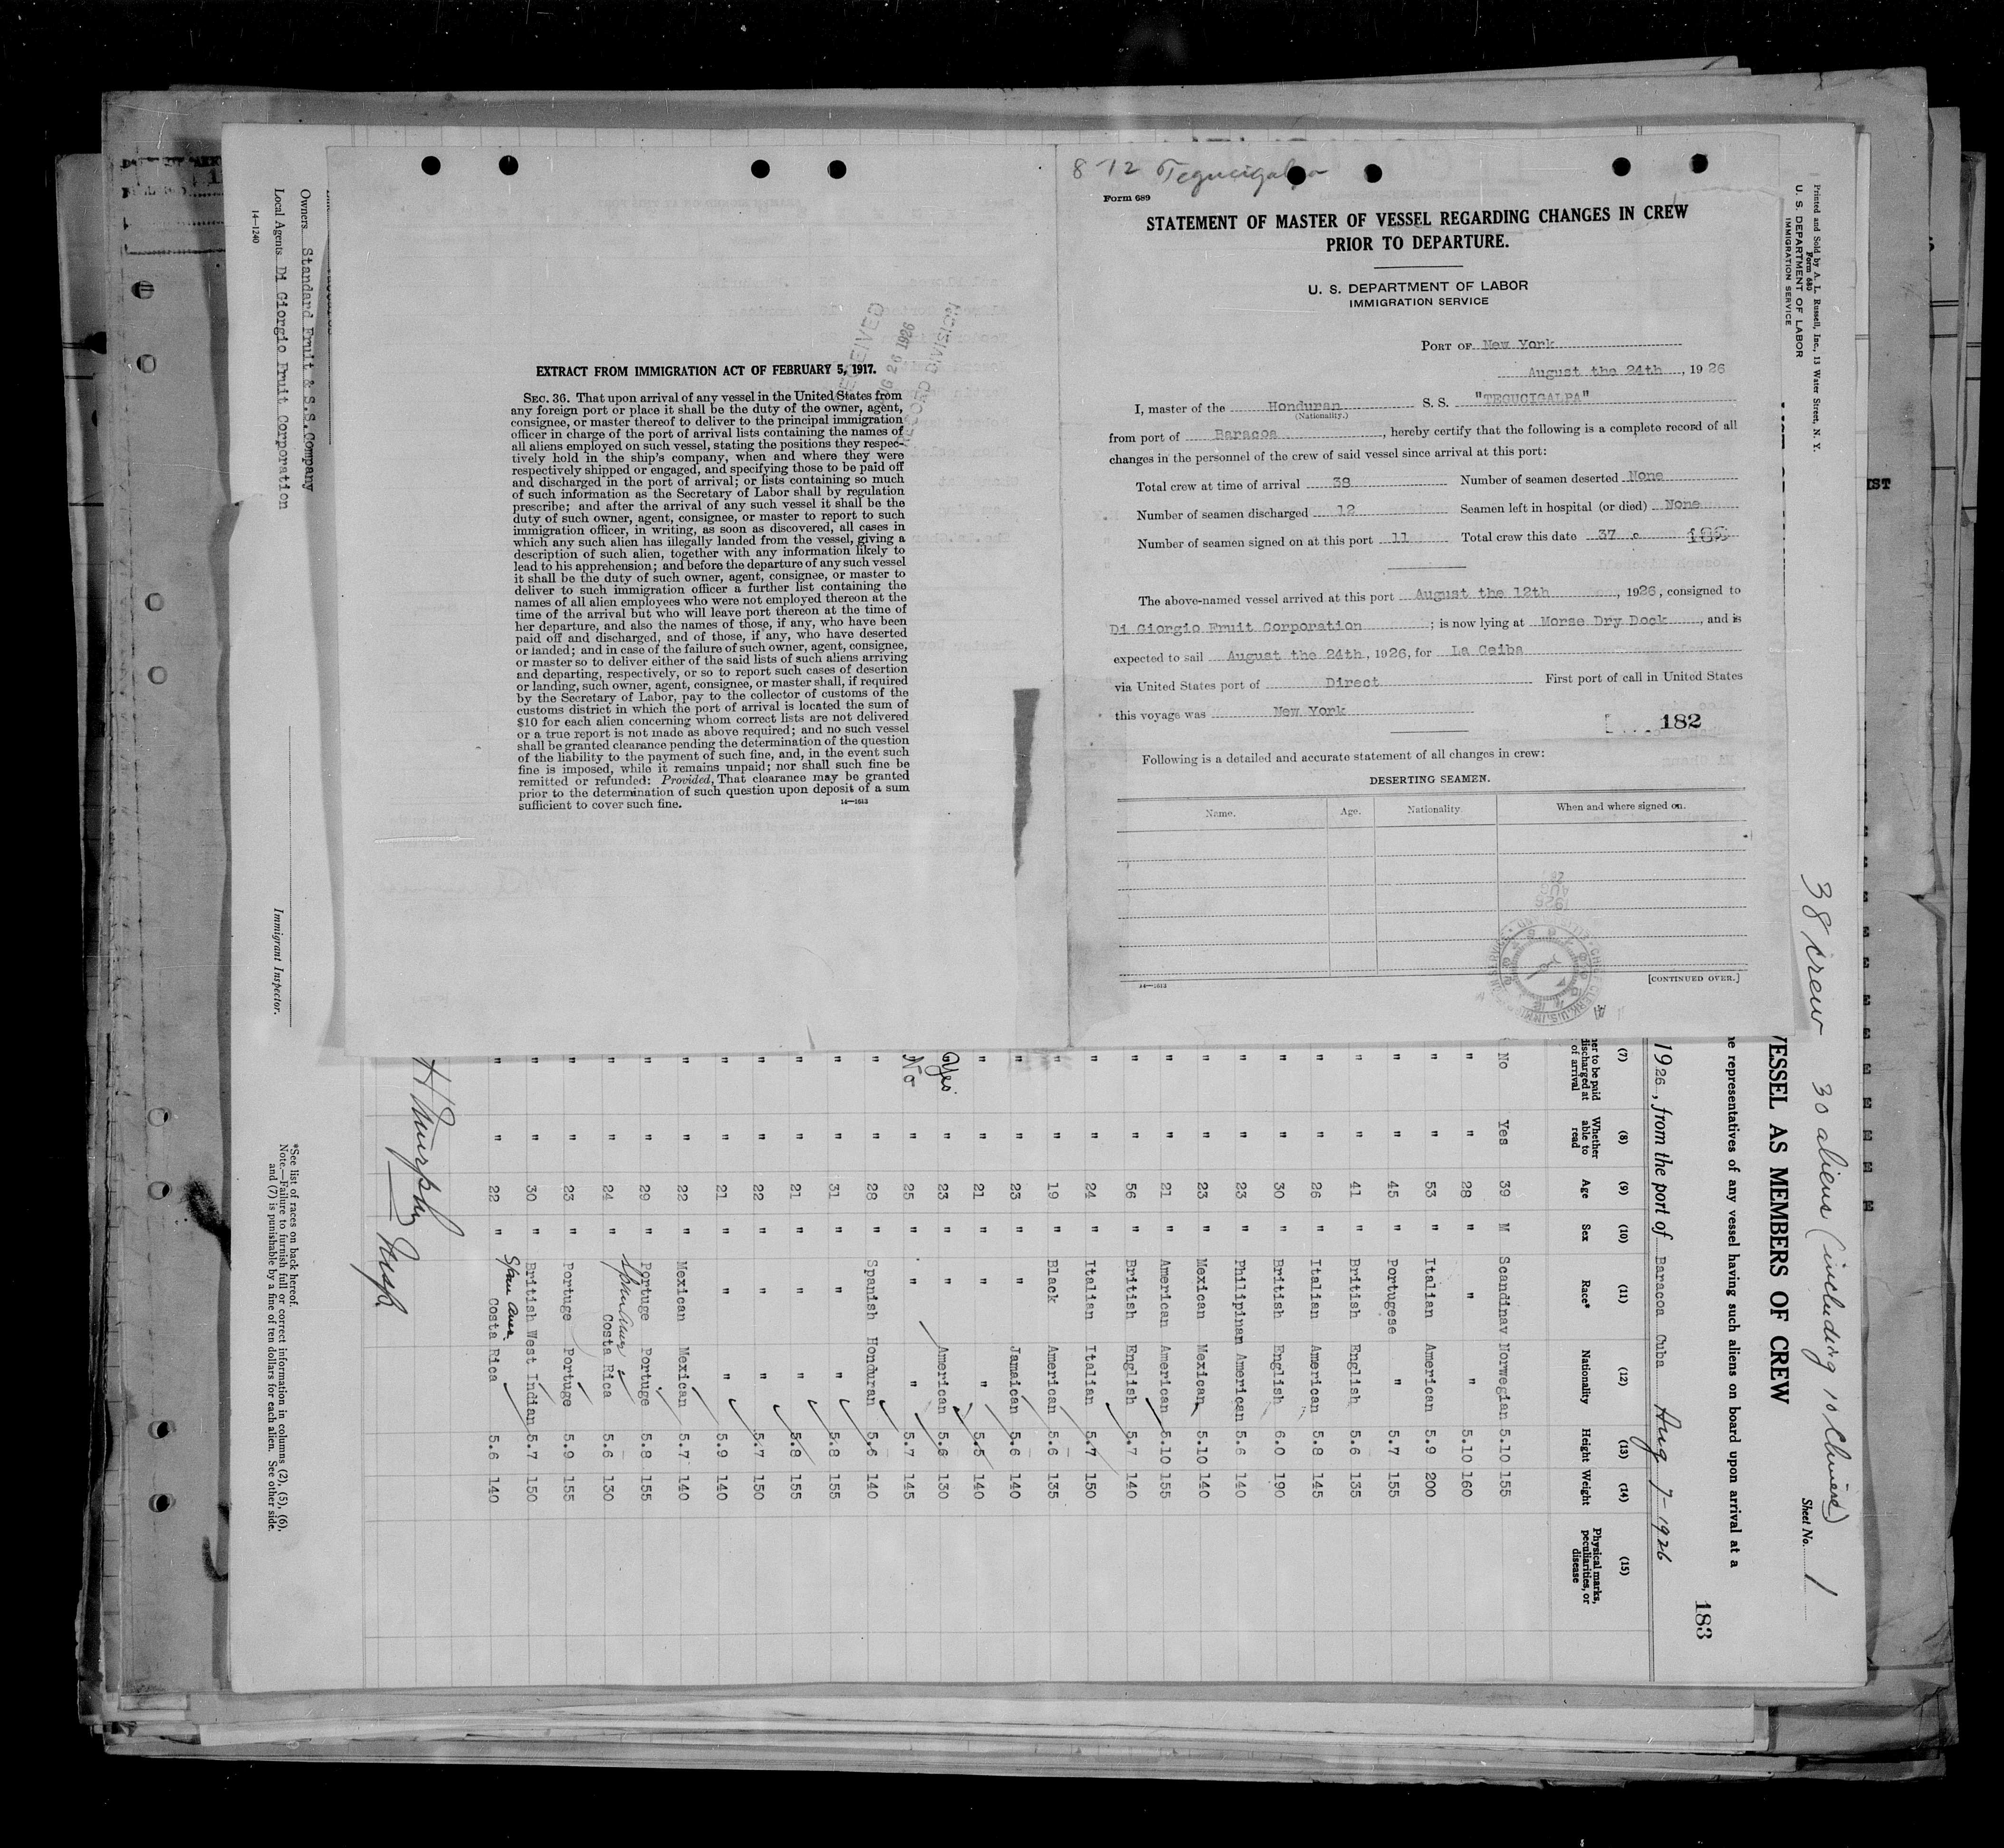 8 12 Tegucigalpa
Form 689
STATEMENT OF MASTER OF VESSEL REGARDING CHANGES IN CREW
PRIOR TO DEPARTURE.
U. S. DEPARTMENT OF LABOR
IMMIGRATION SERVICE
PORT OF New York
August the 24th, 1926
I, master of the Honduran S. S. "TEGUCIGALPA"
(Nationality.)
from port of Baracoa, hereby certify that the following is a complete record of all
changes in the personnel of the crew of said vessel since arrival at this port:
Total crew at time of arrival 38 Number of seamen deserted None
Number of seamen discharged 12 Seamen left in hospital (or died) None
Number of seamen signed on at this port 11 Total crew this date 37
The above-named vessel arrived at this port August the 12th, 1926, consigned to
Di Giorgio Fruit Corporation; is now lying at Morse Dry Dock, and is
expected to sail August the 24th, 1926, for La Ceiba
via United States port of Direct First port of call in United States
this voyage was New York
182
Following is a detailed and accurate statement of all changes in crew:
DESERTING SEAMEN.
Name. Age. Nationality. When and where signed on.
[CONTINUED OVER.]
14—1613
RECEIVED
AUG 26 1926
RECORD DIVISION
EXTRACT FROM IMMIGRATION ACT OF FEBRUARY 5, 1917.
SEC. 36. That upon arrival of any vessel in the United States from
any foreign port or place it shall be the duty of the owner, agent,
consignee, or master thereof to deliver to the principal immigration
officer in charge of the port of arrival lists containing the names of
all aliens employed on such vessel, stating the positions they respec-
tively hold in the ship's company, when and where they were
respectively shipped or engaged, and specifying those to be paid off
and discharged in the port of arrival; or lists containing so much
of such information as the Secretary of Labor shall by regulation
prescribe; and after the arrival of any such vessel it shall be the
duty of such owner, agent, consignee, or master to report to such
immigration officer, in writing, as soon as discovered, all cases in
which any such alien has illegally landed from the vessel, giving a
description of such alien, together with any information likely to
lead to his apprehension; and before the departure of any such vessel
it shall be the duty of such owner, agent, consignee, or master to
deliver to such immigration officer a further list containing the
names of all alien employees who were not employed thereon at the
time of the arrival but who will leave port thereon at the time of
her departure, and also the names of those, if any, who have been
paid off and discharged, and of those, if any, who have deserted
or landed; and in case of the failure of such owner, agent, consignee,
or master so to deliver either of the said lists of such aliens arriving
and departing, respectively, or so to report such cases of desertion
or landing, such owner, agent, consignee, or master shall, if required
by the Secretary of Labor, pay to the collector of customs of the
customs district in which the port of arrival is located the sum of
$10 for each alien concerning whom correct lists are not delivered
or a true report is not made as above required; and no such vessel
shall be granted clearance pending the determination of the question
of the liability to the payment of such fine, and, in the event such
fine is imposed, while it remains unpaid; nor shall such fine be
remitted or refunded: Provided, That clearance may be granted
prior to the determination of such question upon deposit of a sum
sufficient to cover such fine.
14—1613
Printed and Sold by A. L. Russell, Inc., 13 Water Street, N. Y.
Form 680
U. S. DEPARTMENT OF LABOR
IMMIGRATION SERVICE
38 crew 30 aliens (including 10 Chinese)
Sheet No. 1
VESSEL AS MEMBERS OF CREW
representatives of any vessel having such aliens on board upon arrival at a
183
1926, from the port of Baracoa Cuba Aug 7-1926
(7) (8) (9) (10) (11) (12) (13) (14) (15)
her to be paid discharged at of arrival Whether able to read Age Sex Race* Nationality Height Weight Physical marks, peculiarities, or disease
No Yes 39 M Scandinav Norwegian 5.10 155
" " 28 " " " 5.10 160
" " 53 " Italian American 5.9 200
" " 45 " Portugese " 5.7 155
" " 41 " British English 5.6 135
" " 26 " Italian American 5.8 145
" " 30 " British English 6.0 190
" " 23 " Philipinan American 5.6 140
" " 23 " Mexican Mexican 5.10 140
" " 21 " American American 5.10 155
" " 56 " British English 5.7 140
" " 24 " Italian Italian 5.7 150
" " 19 " Black American 5.6 135
" " 23 " " Jamaican 5.6 140
" " 21 " " " 5.5 140
Yes " 23 " " American 5.6 130
No " 25 " " " 5.7 145
" " 28 " Spanish Honduran 5.6 140
" " 31 " " " 5.8 155
" " 21 " " " 5.8 155
" " 22 " " " 5.7 150
" " 21 " " " 5.9 140
" " 22 " Mexican Mexican 5.7 140
" " 29 " Portuge Portuge 5.8 155
" " 24 " Span Amer Costa Rica 5.6 130
" " 23 " Portuge Portuge 5.9 155
" " 30 " British West Indian 5.7 150
" " 22 " Span Amer. Costa Rica 5.6 140
H Murphy Insp.
Immigrant Inspector.
Owners Standard Fruit & S.S. Company
Local Agents Di Giorgio Fruit Corporation
14—1240
*See list of races on back hereof.
Note.—Failure to furnish full or correct information in columns (2), (5), (6),
and (7) is punishable by a fine of ten dollars for each alien. See other side.